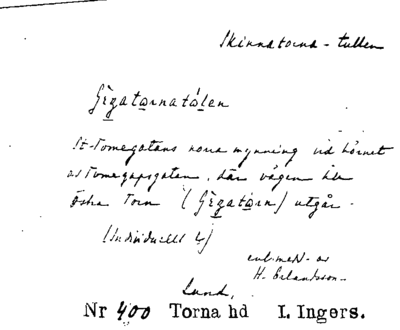 Skinnatorna-tullen
Gègatornatólen
St. Tomegatans norra mynning vid hörnet
av Tomegapsgatan, där vägen till
Östra Torn (Gègatórn) utgår.
(Individuellt
enl. medd. av
H. Erlantsson.
Lund,
Nr 400 Torna hd I. Ingers.